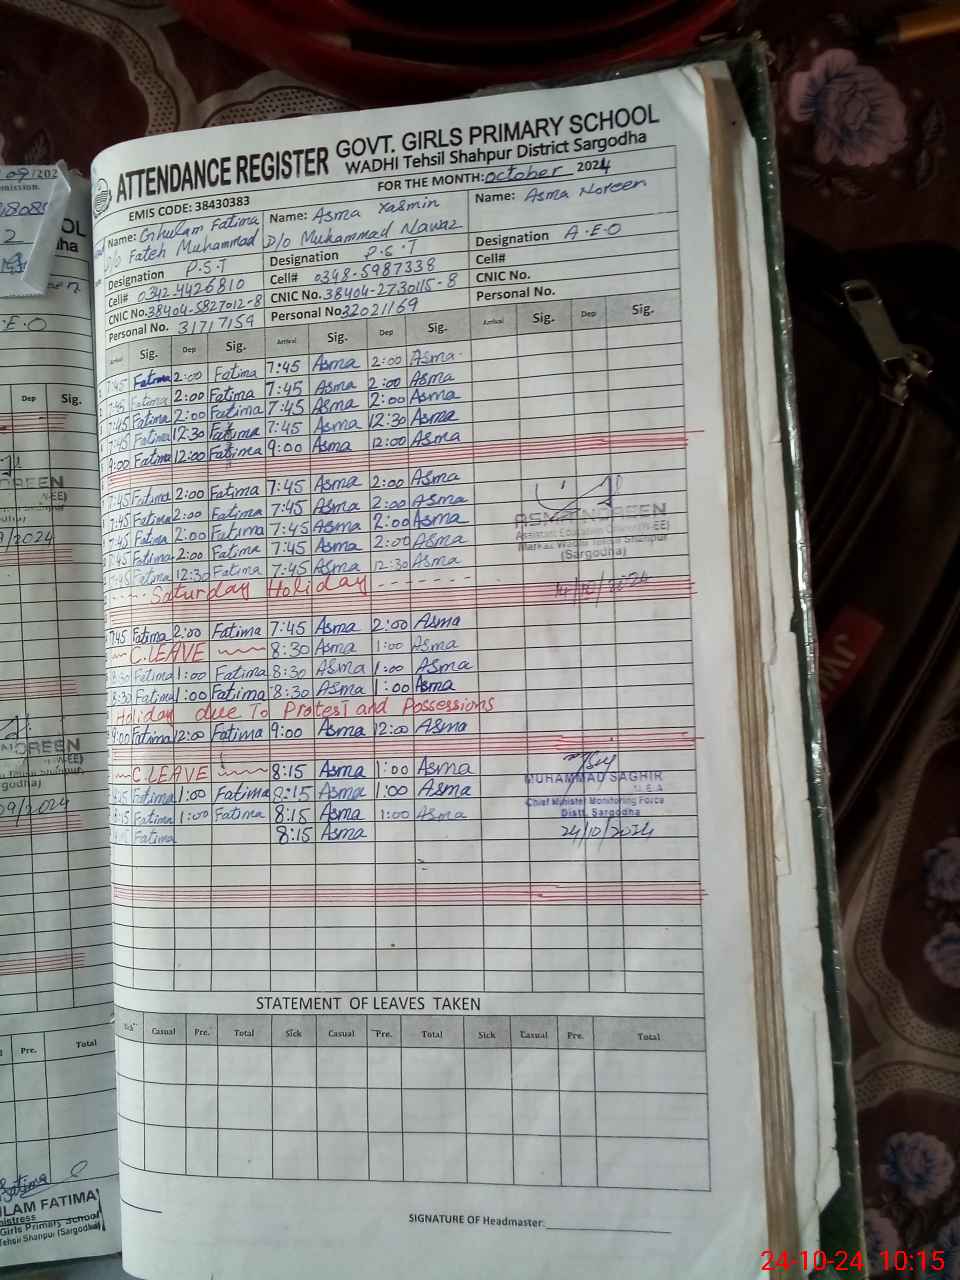 ATTENDANCE REGISTER GOVT. GIRLS PRIMARY SCHOOL
WADHI Tehsil Shahpur District Sargodha
EMIS CODE: 38430383 FOR THE MONTH: October 2024
Name: Ghulam Fatima Name: Asma Yasmin Name: Asma Noreen
D/o Fateh Muhammad D/o Muhammad Nawaz
Designation P.S.T Designation P.S.T Designation A.E.O
Cell# 0342-4426810 Cell# 0348-5987338 Cell#
CNIC No. 38404-5827012-8 CNIC No. 38404-2730115-8 CNIC No.
Personal No. 31717154 Personal No 32021169 Personal No.
Arrival Sig. Dep Sig. Arrival Sig. Dep Sig. Arrival Sig. Dep Sig.
7:45 Fatima 2:00 Fatima 7:45 Asma 2:00 Asma
7:45 Fatima 2:00 Fatima 7:45 Asma 2:00 Asma
7:45 Fatima 2:00 Fatima 7:45 Asma 2:00 Asma
7:45 Fatima 12:30 Fatima 7:45 Asma 12:30 Asma
9:00 Fatima 12:00 Fatima 9:00 Asma 12:00 Asma
7:45 Fatima 2:00 Fatima 7:45 Asma 2:00 Asma
7:45 Fatima 2:00 Fatima 7:45 Asma 2:00 Asma
7:45 Fatima 2:00 Fatima 7:45 Asma 2:00 Asma
7:45 Fatima 2:00 Fatima 7:45 Asma 2:00 Asma
7:45 Fatima 12:30 Fatima 7:45 Asma 12:30 Asma
ASMA NOREEN
Assistant Education Officer (W-EE)
Markaz Wadhi Tehsil Shahpur
(Sargodha)
14/10/2024
Saturday Holiday
7:45 Fatima 2:00 Fatima 7:45 Asma 2:00 Asma
C.LEAVE 8:30 Asma 1:00 Asma
8:30 Fatima 1:00 Fatima 8:30 Asma 1:00 Asma
8:30 Fatima 1:00 Fatima 8:30 Asma 1:00 Asma
Holiday due To Protest and Possessions
9:00 Fatima 12:00 Fatima 9:00 Asma 12:00 Asma
C.LEAVE 8:15 Asma 1:00 Asma
8:15 Fatima 1:00 Fatima 8:15 Asma 1:00 Asma
8:15 Fatima 1:00 Fatima 8:15 Asma 1:00 Asma
8:15 Fatima 8:15 Asma
MUHAMMAD SAGHIR
M.E.A
Chief Minister Monitoring Force
Distt. Sargodha
24/10/2024
STATEMENT OF LEAVES TAKEN
Sick Casual Pre. Total Sick Casual Pre. Total Sick Casual Pre. Total
SIGNATURE OF Headmaster:
Dep Sig.
NOREEN
9/2024
NOREEN
09/2024
Pre. Total
Fatima
LAM FATIMA
Girls Primary School
Tehsil Shahpur (Sargodha)
24-10-24 10:15